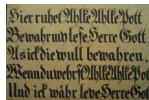 Hier ruhet Ahlke Ahlke Pott
Bewahr my lefe Herre Gott
As ick die wull bewahren,
Wenn du wehrst Ahlke Ahlke Pott
Und ick wåhr leve Herre Gott